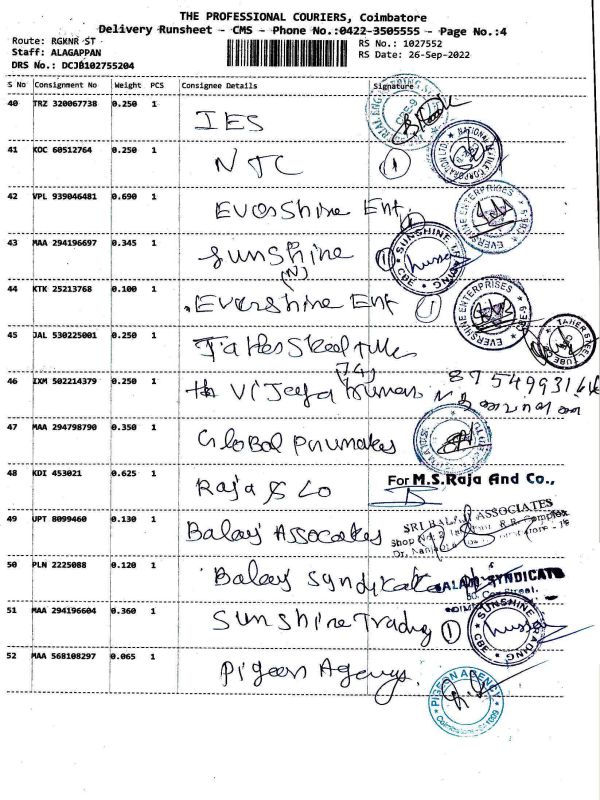 THE PROFESSIONAL COURIERS, Coimbatore
Delivery Runsheet - CMS - Phone No.:0422-3505555 - Page No.:4
Route: RGKNR ST
RS No.: 1027552
Staff: ALAGAPPAN
RS Date: 26-Sep-2022
DRS No.: DCJB102755204
S No Consignment No Weight PCS Consignee Details Signature
40 TRZ 320067738 0.250 1 IES
41 KOC 60512764 0.250 1 NTC 1
42 VPL 939046481 0.690 1 Evershine Ent. 1
EVERSHINE ENTERPRISES
43 MAA 294196697 0.345 1 Sunshine 1
(N)
SUNSHINE TRADING CBE
44 KTK 25213768 0.100 1 Evershine Ent 1
EVERSHINE ENTERPRISES
45 JAL 530225001 0.250 1
TAHER STEEL TUBE
(74)
46 IXM 502214379 0.250 1 Vijeya
47 MAA 294798790 0.350 1 Global
48 KDI 453021 0.625 1 Raja & Co
For M.S.Raja And Co.,
49 UPT 8099460 0.130 1 Balaji Assocates
SRI BALAJI ASSOCIATES
Shop No: 2 R.R. Complex
50 PLN 2225088 0.120 1 Balaji Syndicate
BALAJI SYNDICATE
51 MAA 294196604 0.360 1 Sunshine Trading 1
SUNSHINE TRADING CBE
52 MAA 568108297 0.065 1 Pigeon Agencys.
PIGEON AGENCY